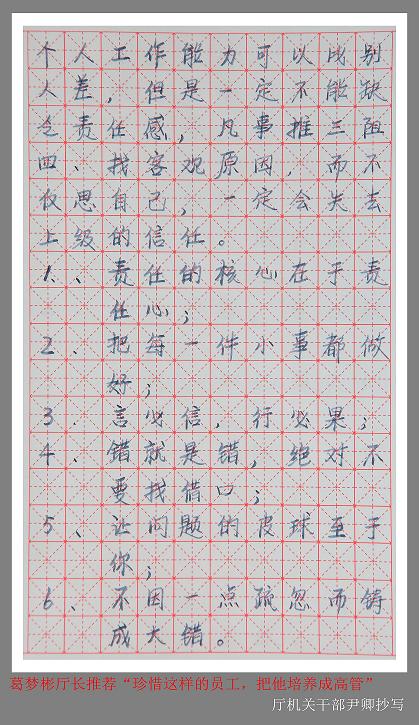 个人工作能力可以比别
人差，但是一定不能缺
乏责任感，凡事推三阻
四、找客观原因，而不
仅思自己，一定会失去
上级的信任。
1、责任的核心在于责
任心；
2、把每一件小事都做
好；
3、言必信，行必果；
4、错就是错，绝对不
要找借口；
5、让问题的皮球至于
你；
6、不因一点疏忽而铸
成大错。
葛梦彬厅长推荐“珍惜这样的员工，把他培养成高管”
厅机关干部尹卿抄写